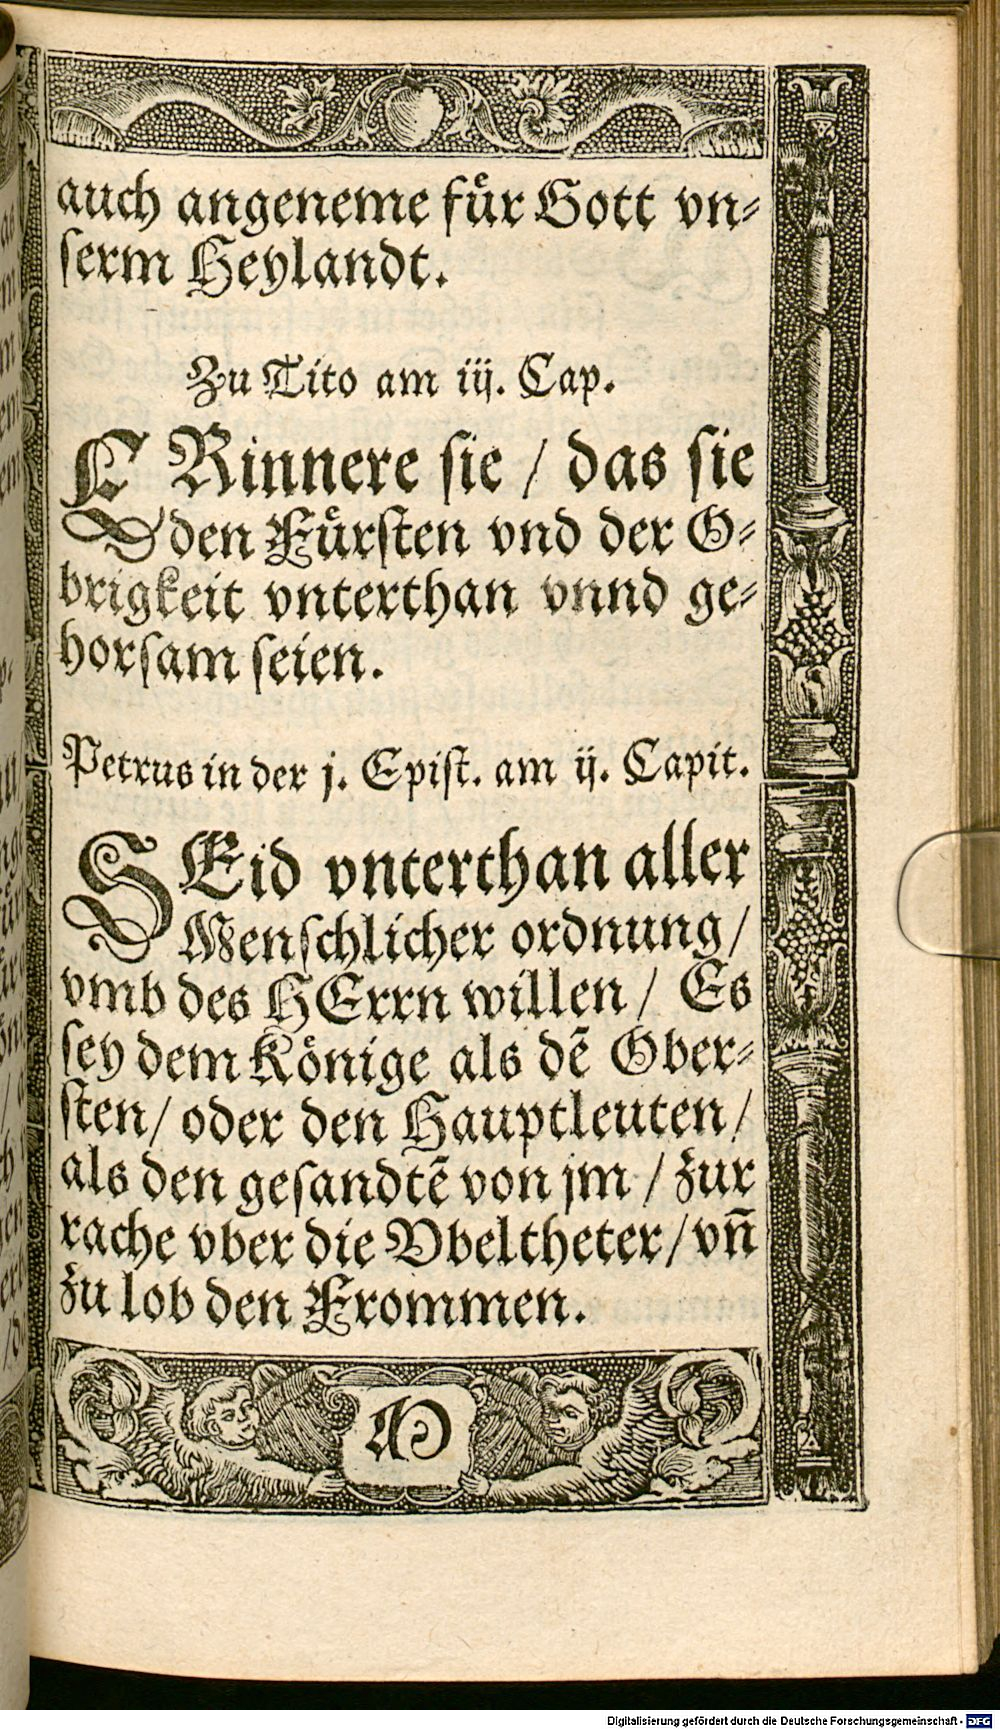 auch angeneme fuͤr Gott vn⸗
ſerm Heylandt.
Zu Tito am iij. Cap.
ERinnere ſie / das ſie
den Fuͤrſten vnd der O⸗
brigkeit vnterthan vnnd ge⸗
horſam ſeien.
Petrus in der j. Epiſt. am ij. Capit.
SEid vnterthan aller
Menſchlicher ordnung /
vmb des HErrn willen / Es
ſey dem Koͤnige als dẽ Ober⸗
ſten / oder den Hauptleuten /
als den geſandtẽ von jm / zur
rache vber die Vbeltheter / vñ
zu lob den Frommen.
Digitalisierung gefördert durch die Deutsche Forschungsgemeinschaft - DFG